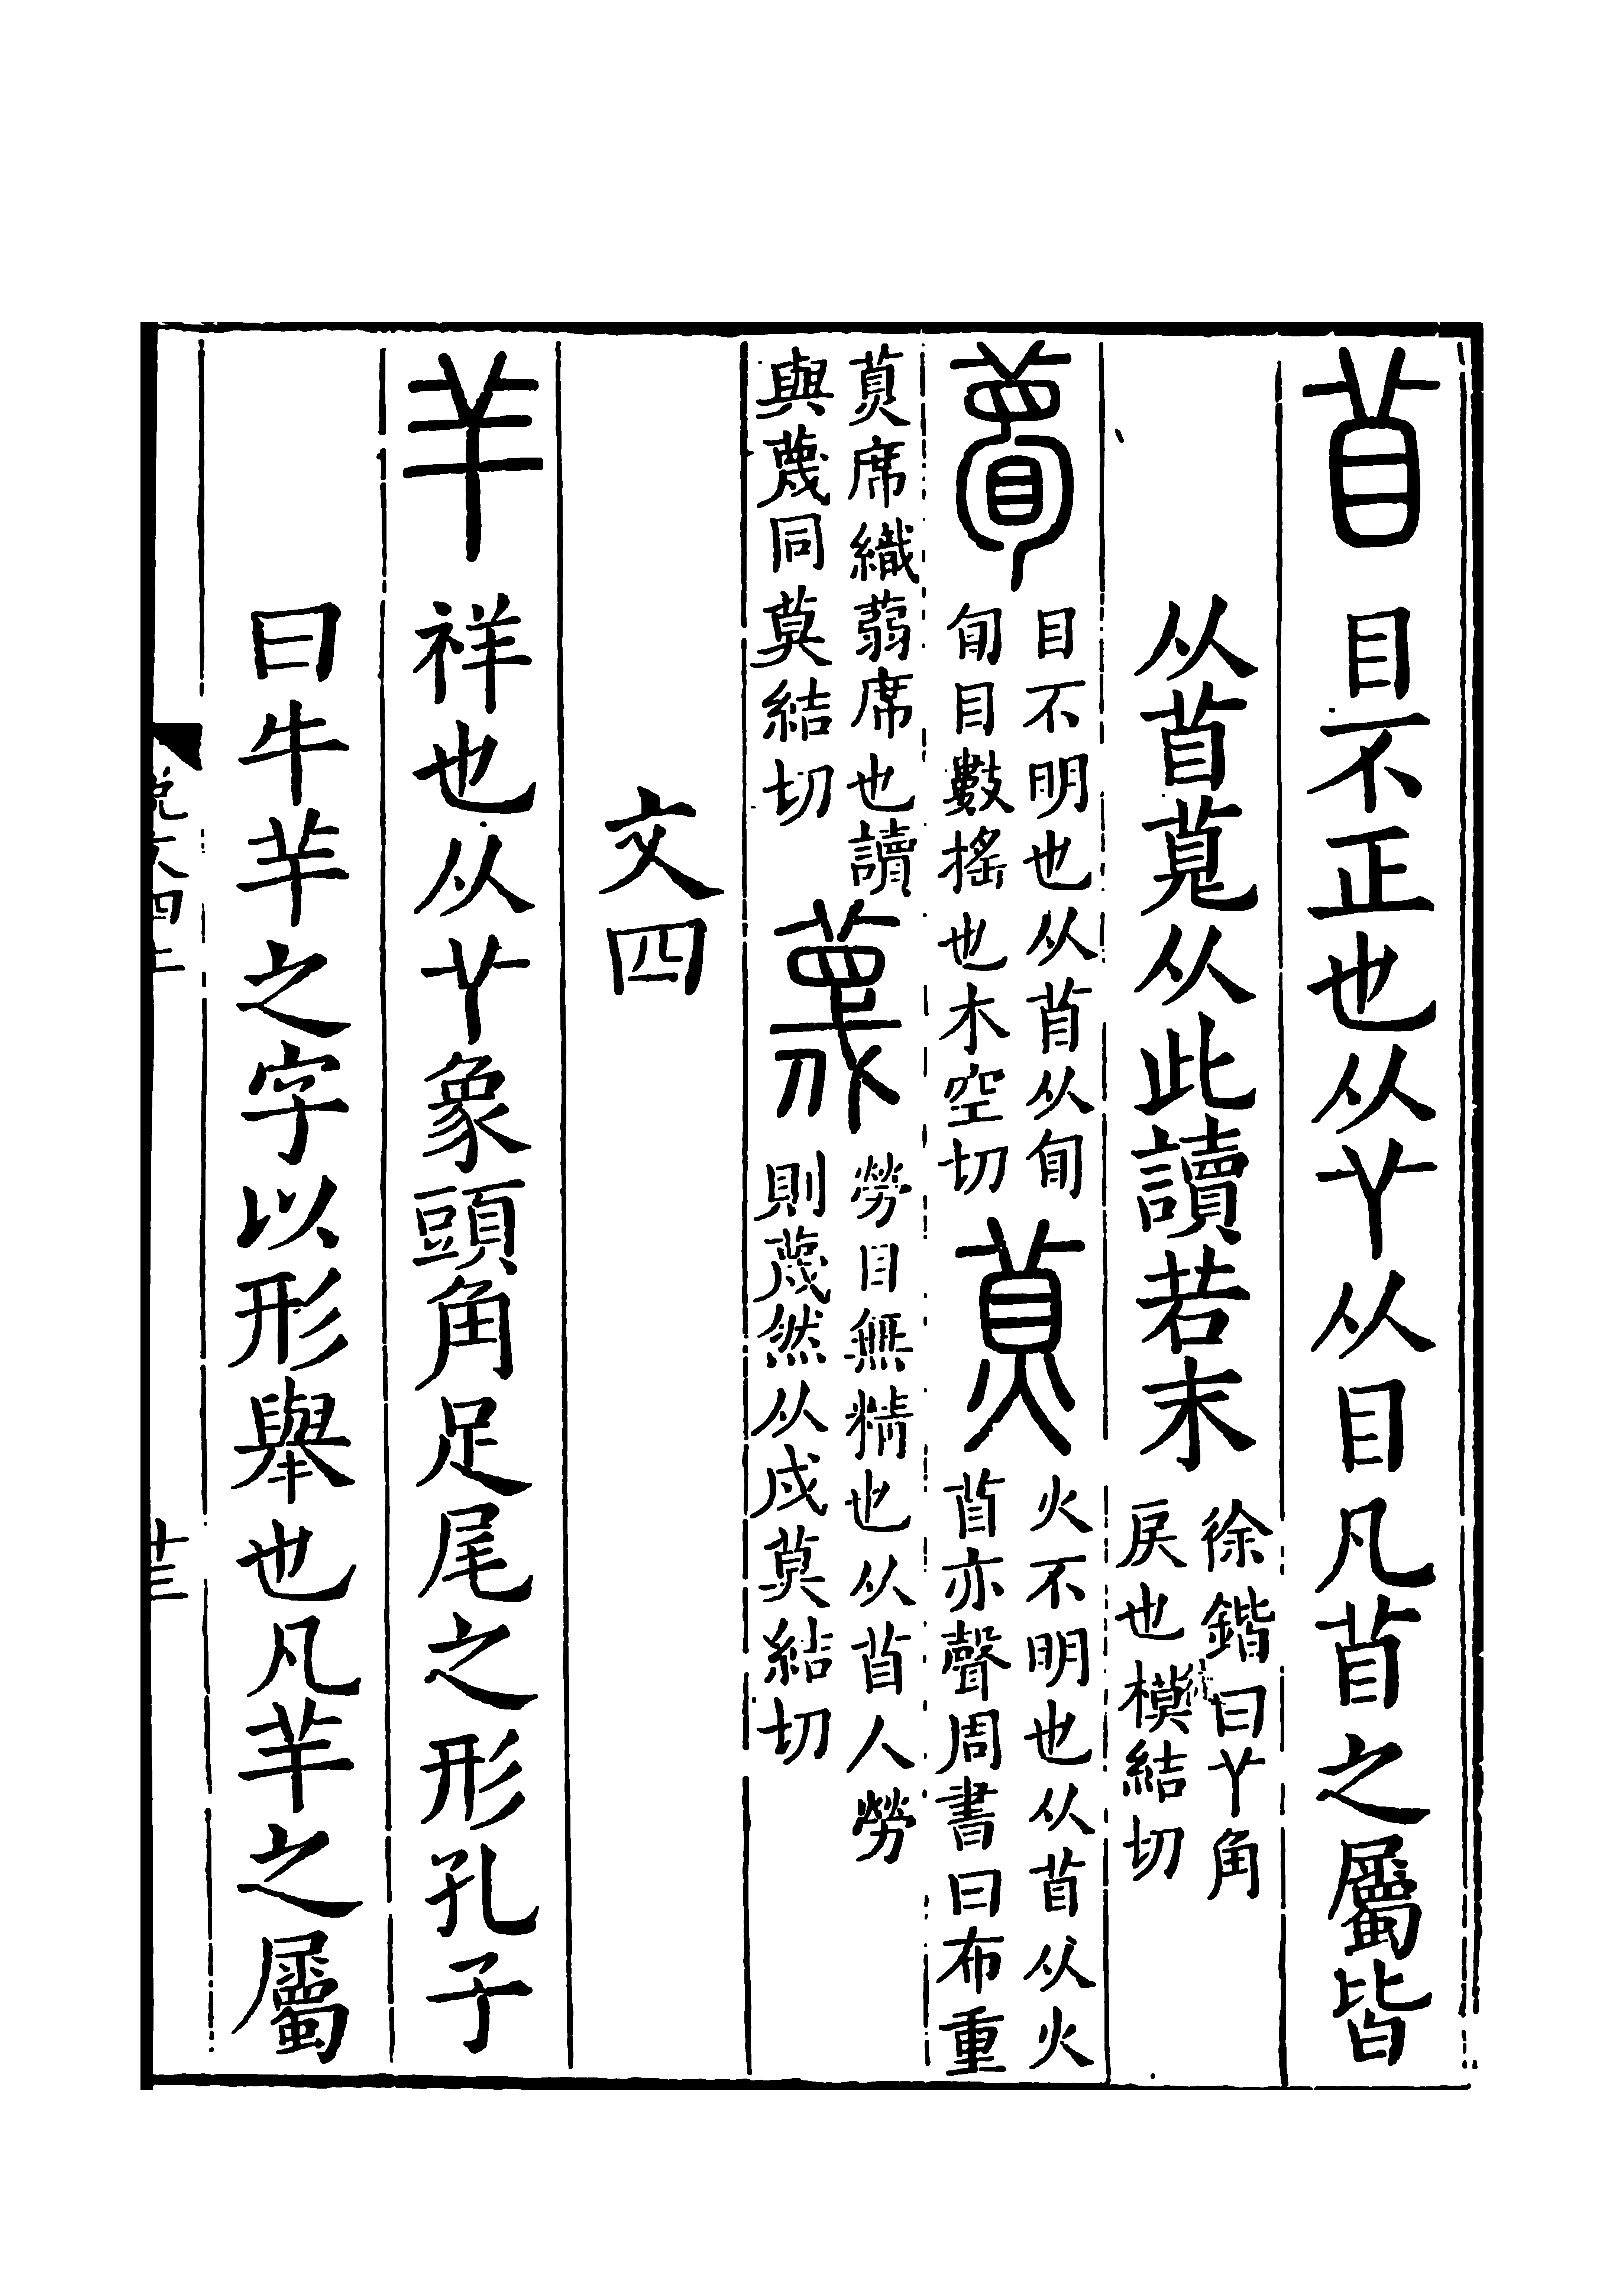 苜 目不正也从𦫳从目凡苜之屬皆
从苜莧从此讀若末 徐鍇曰𦫳角
戾也模結切
瞢 目不明也从苜从旬
旬目數搖也木空切
⿱苜火 火不明也从苜从火
苜亦聲周書曰布重
⿱苜火席織蒻席也讀
與蔑同莫結切
蔑 勞目無精也从苜人勞
則蔑然从戍莫結切
文四
羊 祥也从𦫳象頭角足尾之形孔子
曰牛羊之字以形舉也凡羊之屬
說文四上
十三